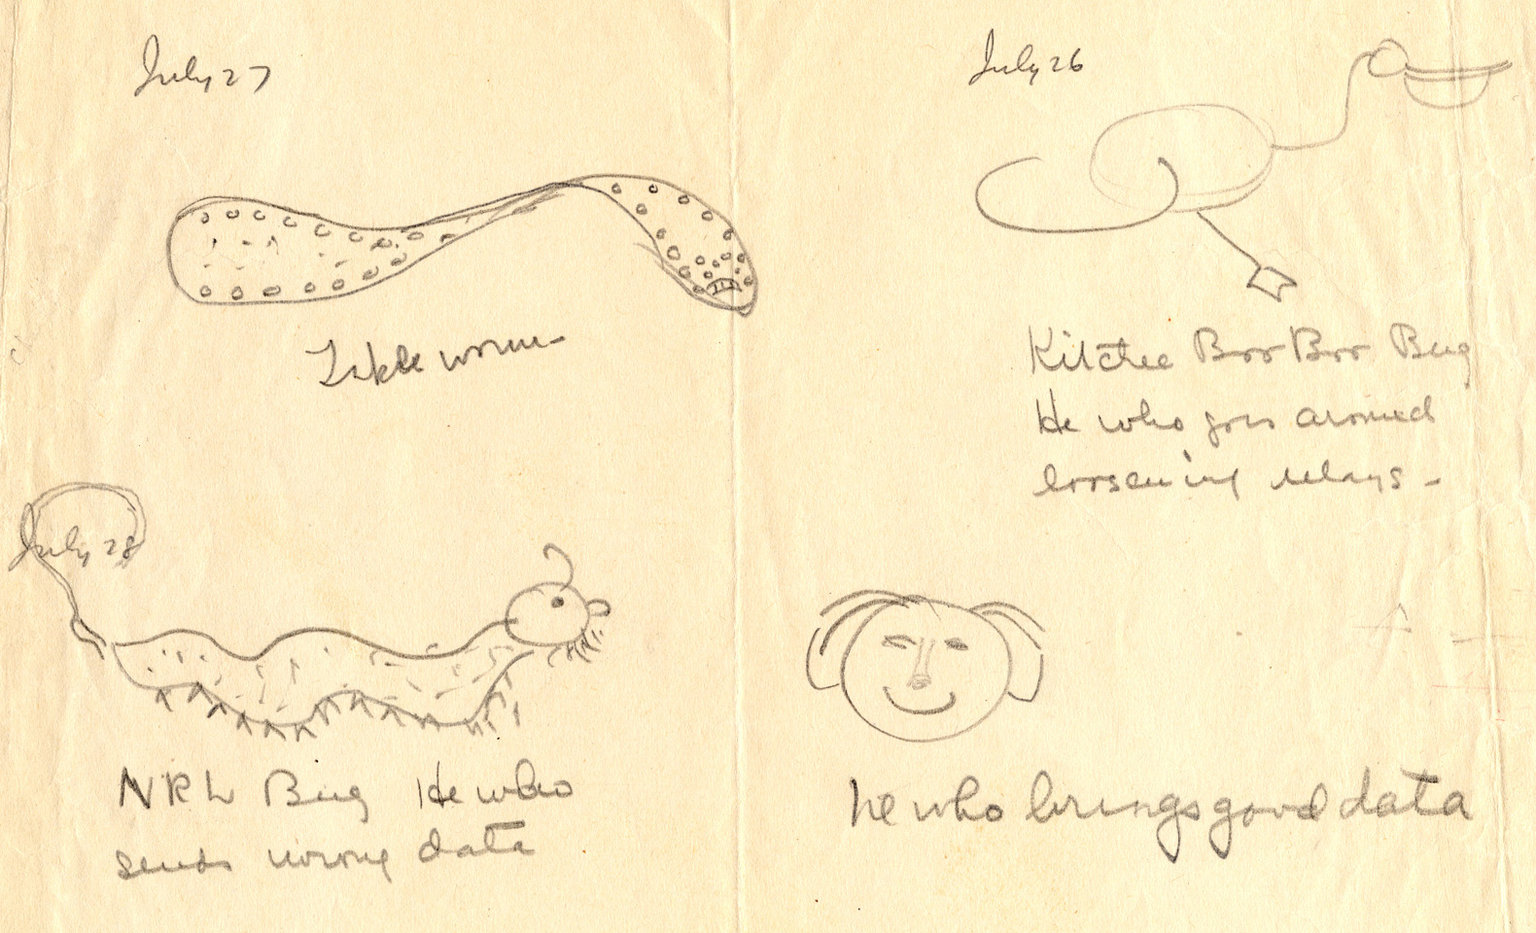 July 27
Table worm
July 26
Kitchie Boo Boo Bug
He who goes around
loosening relays -
July 28
NRL Bug He who
sends wrong data
he who brings good data